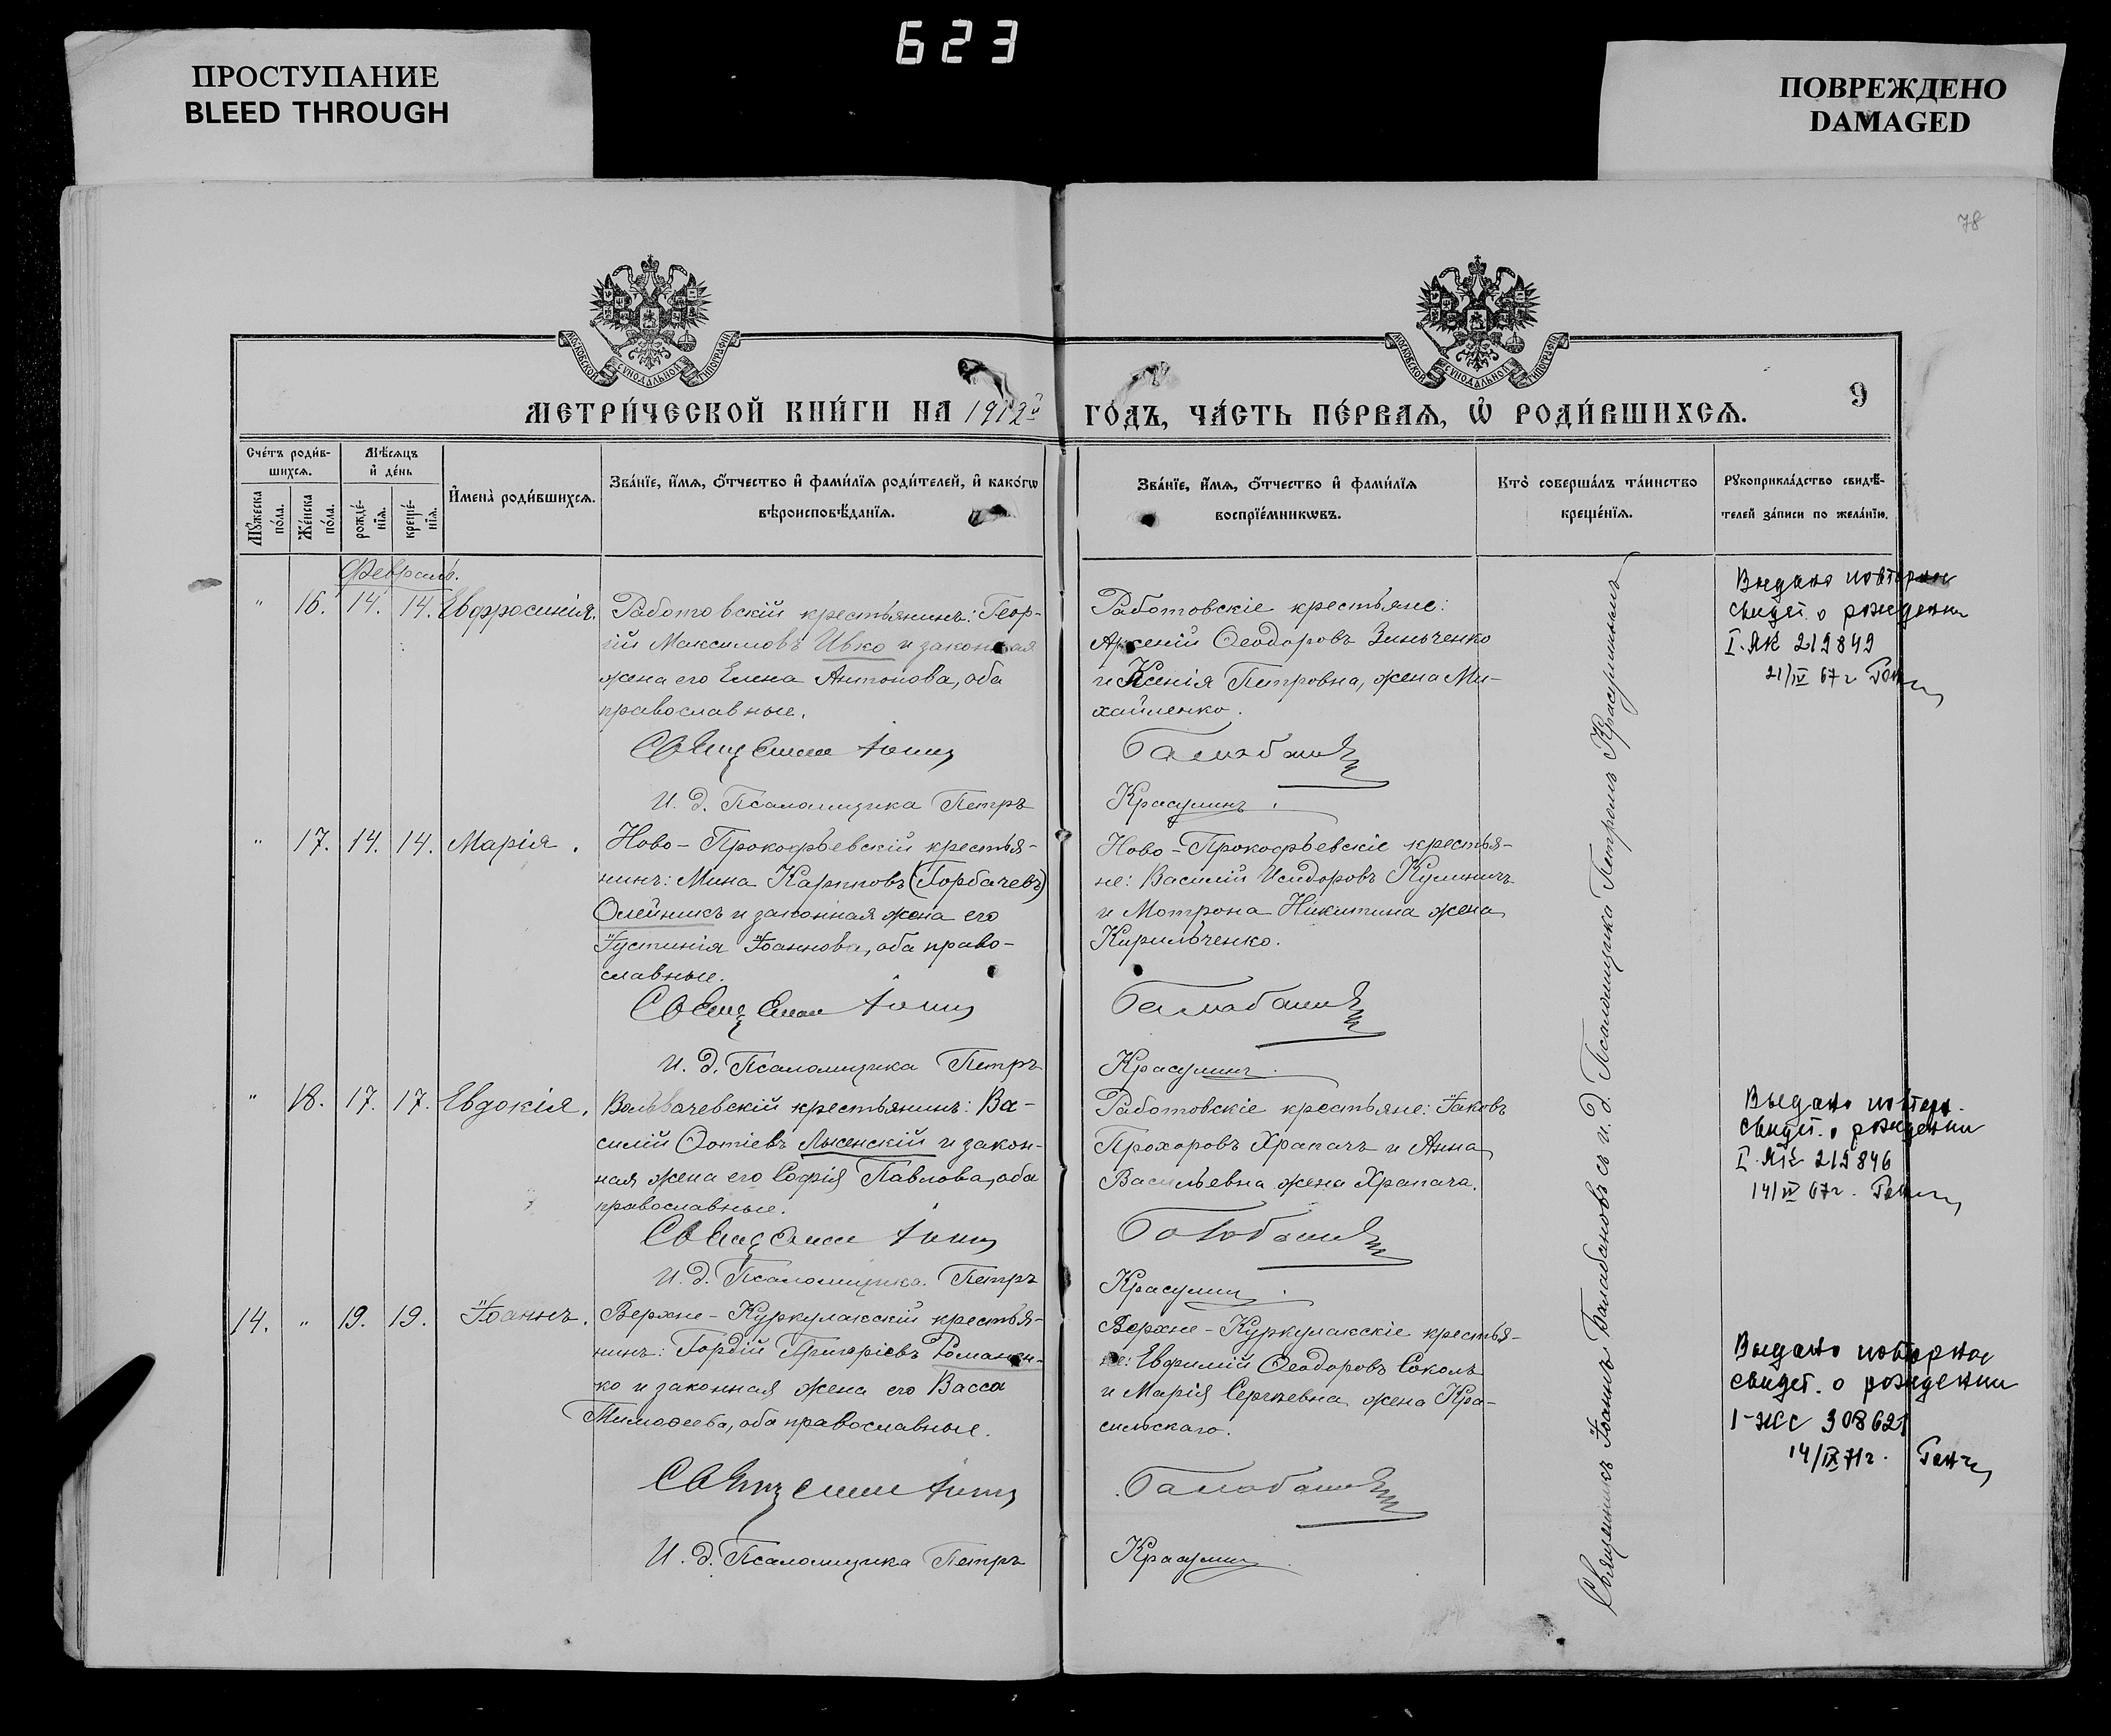 623
ПРОСТУПАНИЕ
BLEED THROUGH
ПОВРЕЖДЕНО
DAMAGED
78
МОСКОВСКОЙ СУНОДАЛЬНОЙ ТИПОГРАФІИ
МОСКОВСКОЙ СУНОДАЛЬНОЙ ТИПОГРАФІИ
9
МЕТРИ́ЧЕСКОЙ КНИ́ГИ НА 1912й
ГО́ДЪ, ЧА́СТЬ ПЕ́РВАѦ, Ѡ҆ РОДИ́ВШИХСѦ.
Сче́тъ роди́в-
шихсѧ.
Мѣ́сѧцъ
и҆ де́нь
Мꙋ́жеска
по́ла.
Же́нска
по́ла.
рожде́-
нїѧ.
креще́-
нїѧ.
И҆мена̀ роди́вшихсѧ.
Зва́нїе, и҆́мѧ, ѻ҆́тчество и҆ фами́лїѧ роди́телей, и҆ како́гѡ
вѣроисповѣ́данїѧ.
Зва́нїе, и҆́мѧ, ѻ҆́тчество и҆ фами́лїѧ
воспрїе́мникѡвъ.
Кто̀ соверша́лъ та́инство
креще́нїѧ.
Рꙋкоприкла́дство свидѣ́-
телей за́писи по жела́нїю.
Февраль.
" 16. 14. 14. Евфросинія.
Работовскій крестьянинъ: Геор-
гій Максимовъ Ивко и законная
жена его Елена Антонова, оба
православные.
Священникъ Іоаннъ
И. д. Псаломщика Петръ
Работовскіе крестьяне:
Арсеній Ѳеодоровъ Зинченко
и Ксенія Петровна, жена Ми-
хайленко.
Балабановъ
Красулинъ.
Выдано повторное
свидет. о рождении
I-ЯК 219849
21/IV 67 г.
" 17. 14. 14. Марія.
Ново-Прокофьевскій крестья-
нинъ: Мина Карповъ (Горбачевъ)
Олейникъ и законная жена его
Іустинія Іоаннова, оба право-
славные.
Священникъ Іоаннъ
И. д. Псаломщика Петръ
Ново-Прокофьевскіе крестья-
не: Василій Исидоровъ Кулиничъ
и Мотрона Никитина жена
Кирильченко.
Балабановъ
Красулинъ.
" 18. 17. 17. Евдокія.
Вольвачевскій крестьянинъ: Ва-
силій Фотіевъ Лысенскій и закон-
ная жена его Софія Павлова, оба
православные.
Священникъ Іоаннъ
И. д. Псаломщика Петръ
Работовскіе крестьяне: Іаковъ
Прохоровъ Храпачъ и Анна
Васильевна жена Храпача.
Балабановъ
Красулинъ.
Выдано повторн.
свидет. о рождении
I-ЯК 219846
14/IV 67 г.
14. " 19. 19. Іоаннъ.
Верхне-Куркулакскій крестья-
нинъ: Гордій Григоріевъ Романен-
ко и законная жена его Васса
Тимофеева, оба православные.
Священникъ Іоаннъ
И. д. Псаломщика Петръ
Верхне-Куркулакскіе крестья-
не: Евфимій Ѳеодоровъ Соколъ
и Марія Сергѣевна жена Кра-
сильскаго.
Балабановъ
Красулинъ
Выдано повторное
свидет. о рождении
I-ЖС 308621
14/IX 71 г.
Священникъ Іоаннъ Балабановъ съ и. д. Псаломщика Петромъ Красулинымъ